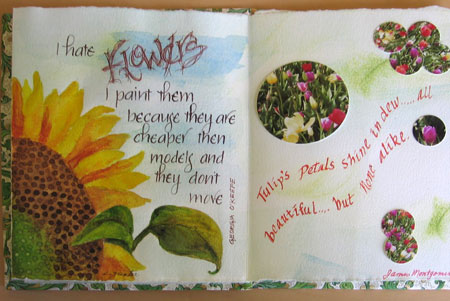 I hate Flowers
I paint them
because they are
cheaper then
models and
they don't
move
GEORGIA O'KEEFE
Tulip's Petals shine in dew..... all
beautiful.... but none alike.